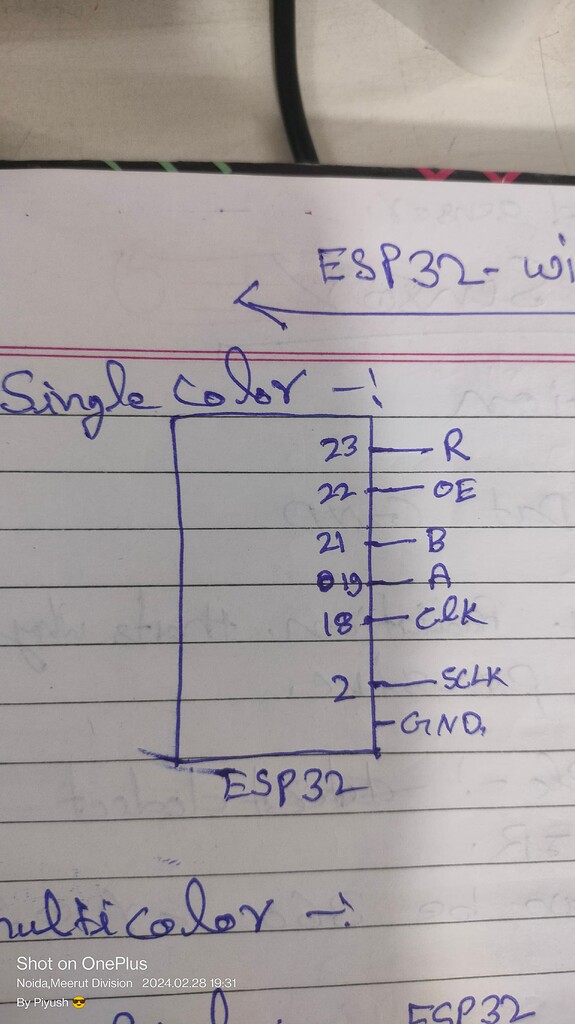 ESP32- Wi
Single Color -:
23 R
22 OE
21 B
19 A
18 ClK
2 SCLK
GND,
ESP32
multicolor -:
Shot on OnePlus
Noida,Meerut Division 2024.02.28 19:31
By Piyush 😎
ESP32